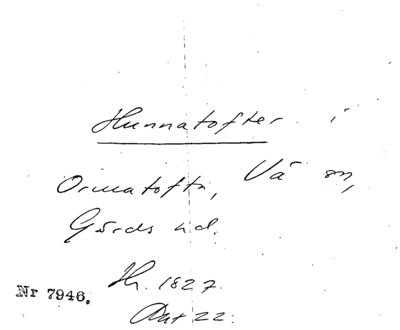 Hunnatofter i
Ormatofta, Vä sn,
Gärds hd.
Hr. 1827.
Nr 7946.
Akt 22.